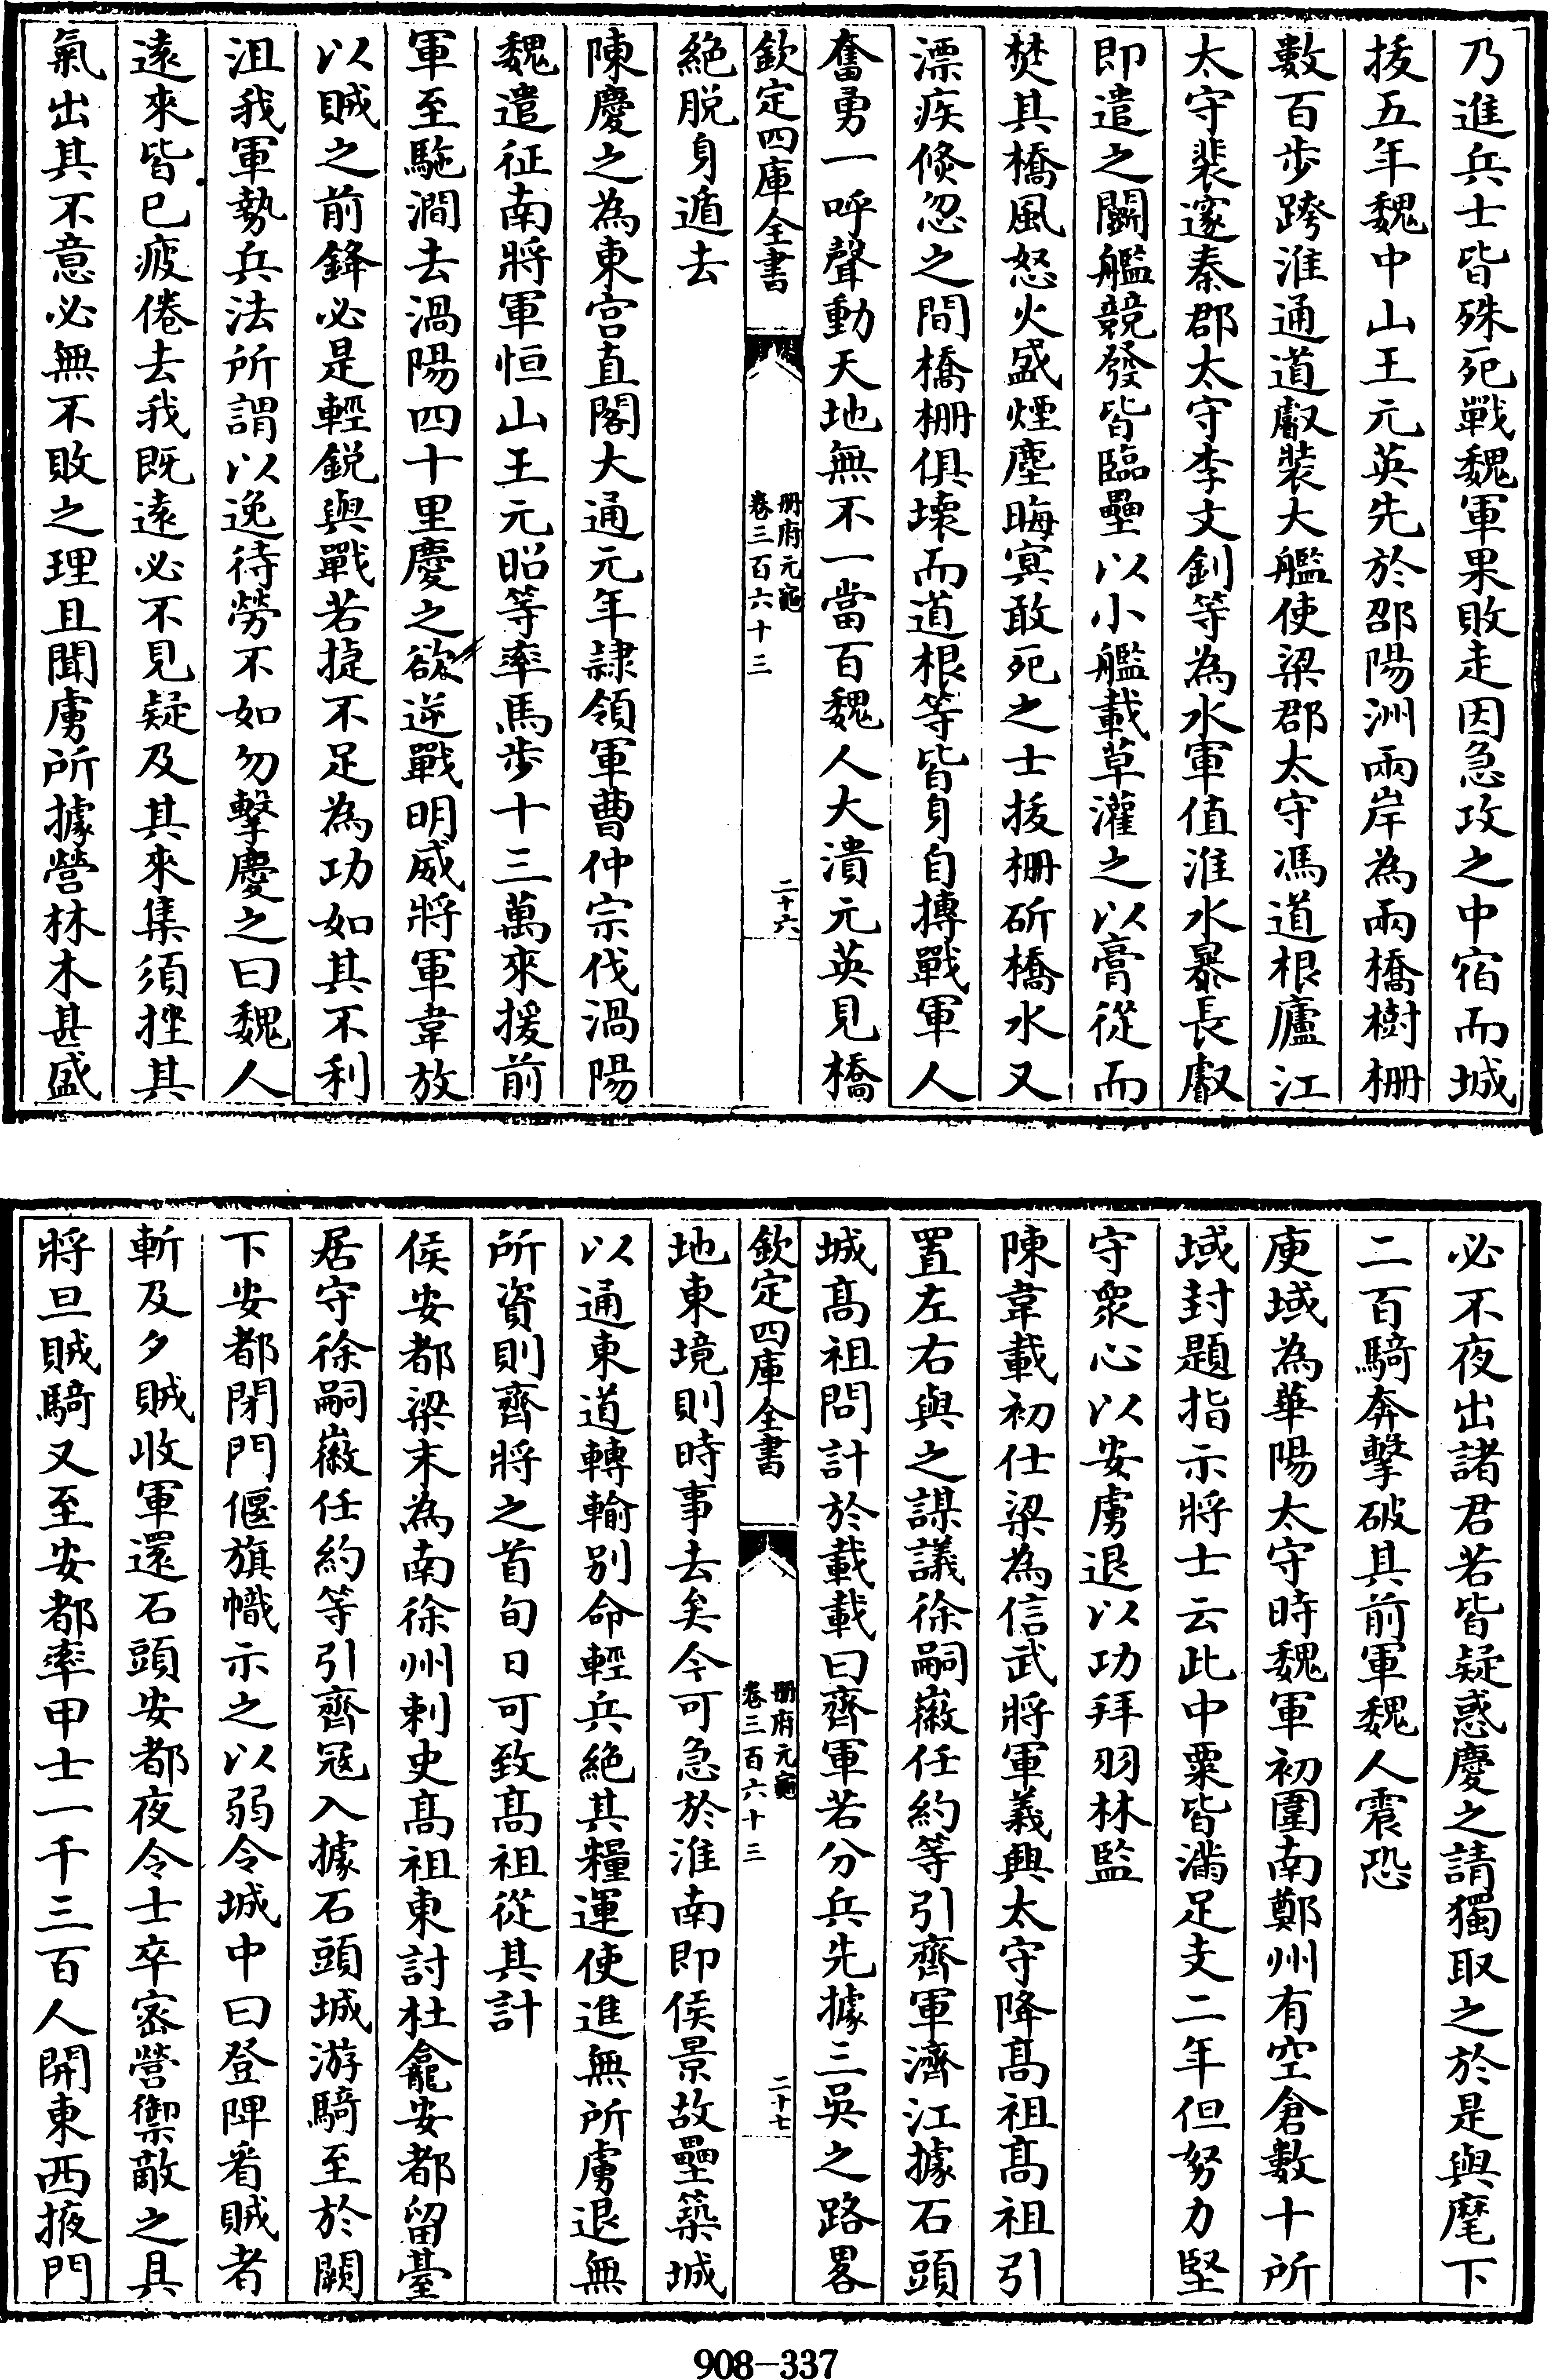 乃進兵士皆殊死戰魏軍果敗走因急攻之中宿而城
拔五年魏中山王元英先於邵陽洲兩岸為兩橋樹柵
數百步跨淮通道叡裝大艦使梁郡太守馮道根廬江
太守裴邃秦郡太守李文釗等為水軍值淮水暴長叡
即遣之鬭艦競發皆臨壘以小艦載草灌之以膏從而
焚其橋風怒火盛煙塵晦冥敢死之士拔柵斫橋水又
漂疾倏忽之間橋柵俱壞而道根等皆身自搏戰軍人
奮勇一呼聲動天地無不一當百魏人大潰元英見橋
欽定四庫全書
冊府元龜
卷三百六十三
二十六
絕脫身遁去
陳慶之為東宮直閤大通元年隷領軍曹仲宗伐渦陽
魏遣征南將軍恒山王元昭等率馬步十三萬來援前
軍至駞澗去渦陽四十里慶之欲逆戰明威將軍韋放
以賊之前鋒必是輕銳與戰若捷不足為功如其不利
沮我軍勢兵法所謂以逸待勞不如勿擊慶之曰魏人
遠來皆已疲倦去我既遠必不見疑及其來集須挫其
氣出其不意必無不敗之理且聞虜所據營林木甚盛
必不夜出諸君若皆疑惑慶之請獨取之於是與麾下
二百騎奔擊破其前軍魏人震恐
庾域為華陽太守時魏軍初圍南鄭州有空倉數十所
域封題指示將士云此中粟皆滿足支二年但努力堅
守衆心以安虜退以功拜羽林監
陳韋載初仕梁為信武將軍義興太守降高祖高祖引
置左右與之謀議徐嗣徽任約等引齊軍濟江據石頭
城高祖問計於載載曰齊軍若分兵先據三吳之路畧
欽定四庫全書
冊府元龜
卷三百六十三
二十七
地東境則時事去矣今可急於淮南即侯景故壘築城
以通東道轉輸別命輕兵絕其糧運使進無所虜退無
所資則齊將之首旬日可致高祖從其計
侯安都梁末為南徐州刺史高祖東討杜龕安都留臺
居守徐嗣徽任約等引齊冦入據石頭城游騎至於闕
下安都閉門偃旗幟示之以弱令城中曰登陴看賊者
斬及夕賊收軍還石頭安都夜令士卒密營禦敵之具
將旦賊騎又至安都率甲士一千三百人開東西掖門
908-337